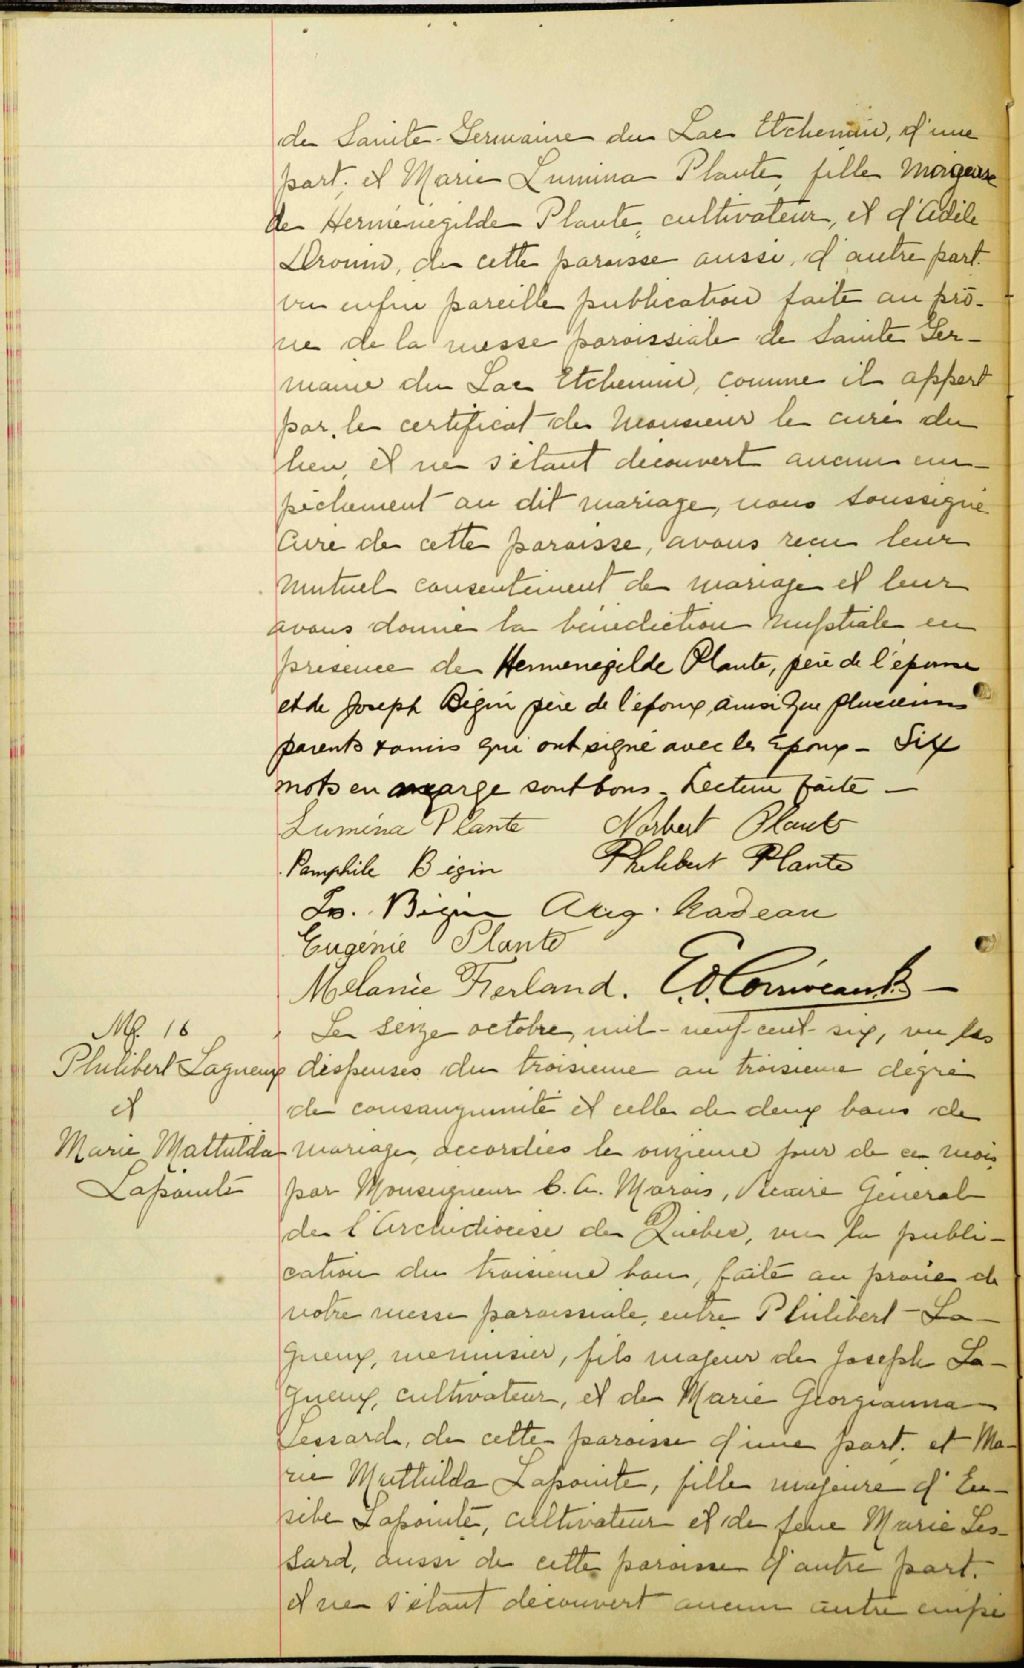 de Sainte-Germaine du Lac Etchemin, d'une
part; et Marie Lumina Plante, fille majeure
de Herménégilde Plante, cultivateur, et d'Adèle
Drouin, de cette paroisse aussi, d'autre part.
vu enfin pareille publication faite au prô-
ne de la messe paroissiale de Sainte Ger-
maine du Lac Etchemin, comme il appert
par le certificat de Monsieur le curé du
lieu, et ne s'étant découvert aucun em-
pêchement au dit mariage, nous soussigné
Curé de cette paroisse, avons reçu leur
mutuel consentement de mariage et leur
avons donné la bénédiction nuptiale en
présence de Hermenegilde Plante, père de l'épouse
et de Joseph Bégin père de l'époux, ainsi que plusieurs
parents & amis qui ont signé avec les époux - Six
mots en marge sont bons - Lecture faite -
Lumina Plante Norbert Plante
Pamphile Bégin Philibert Plante
Jos. Bégin Arig. Nadeau
Eugénie Plante
Mélanie Ferland. E.O. Corriveau Ptr -
M. 16
Philibert Lagueux
et
Marie Mathilda
Lapointe
Le seize octobre, mil-neuf-cent-six, vu les
dispenses du troisième au troisième dégré
de consanguinité et celle de deux bans de
mariage, accordées le onzième jour de ce mois
par Monseigneur C. A. Marois, Vicaire Général
de l'Archidiocèse de Québec, vu la publi-
cation du troisième ban, faite au prône de
notre messe paroissiale, entre Philibert-La-
gueux, menuisier, fils majeur de Joseph La-
gueux, cultivateur, et de Marie Georgianna
Lessard, de cette paroisse d'une part. et Ma-
rie Mathilda Lapointe, fille majeure d'Eu-
sèbe Lapointe, cultivateur et de feue Marie Les-
sard, aussi de cette paroisse d'autre part.
et ne s'étant découvert aucun autre empê